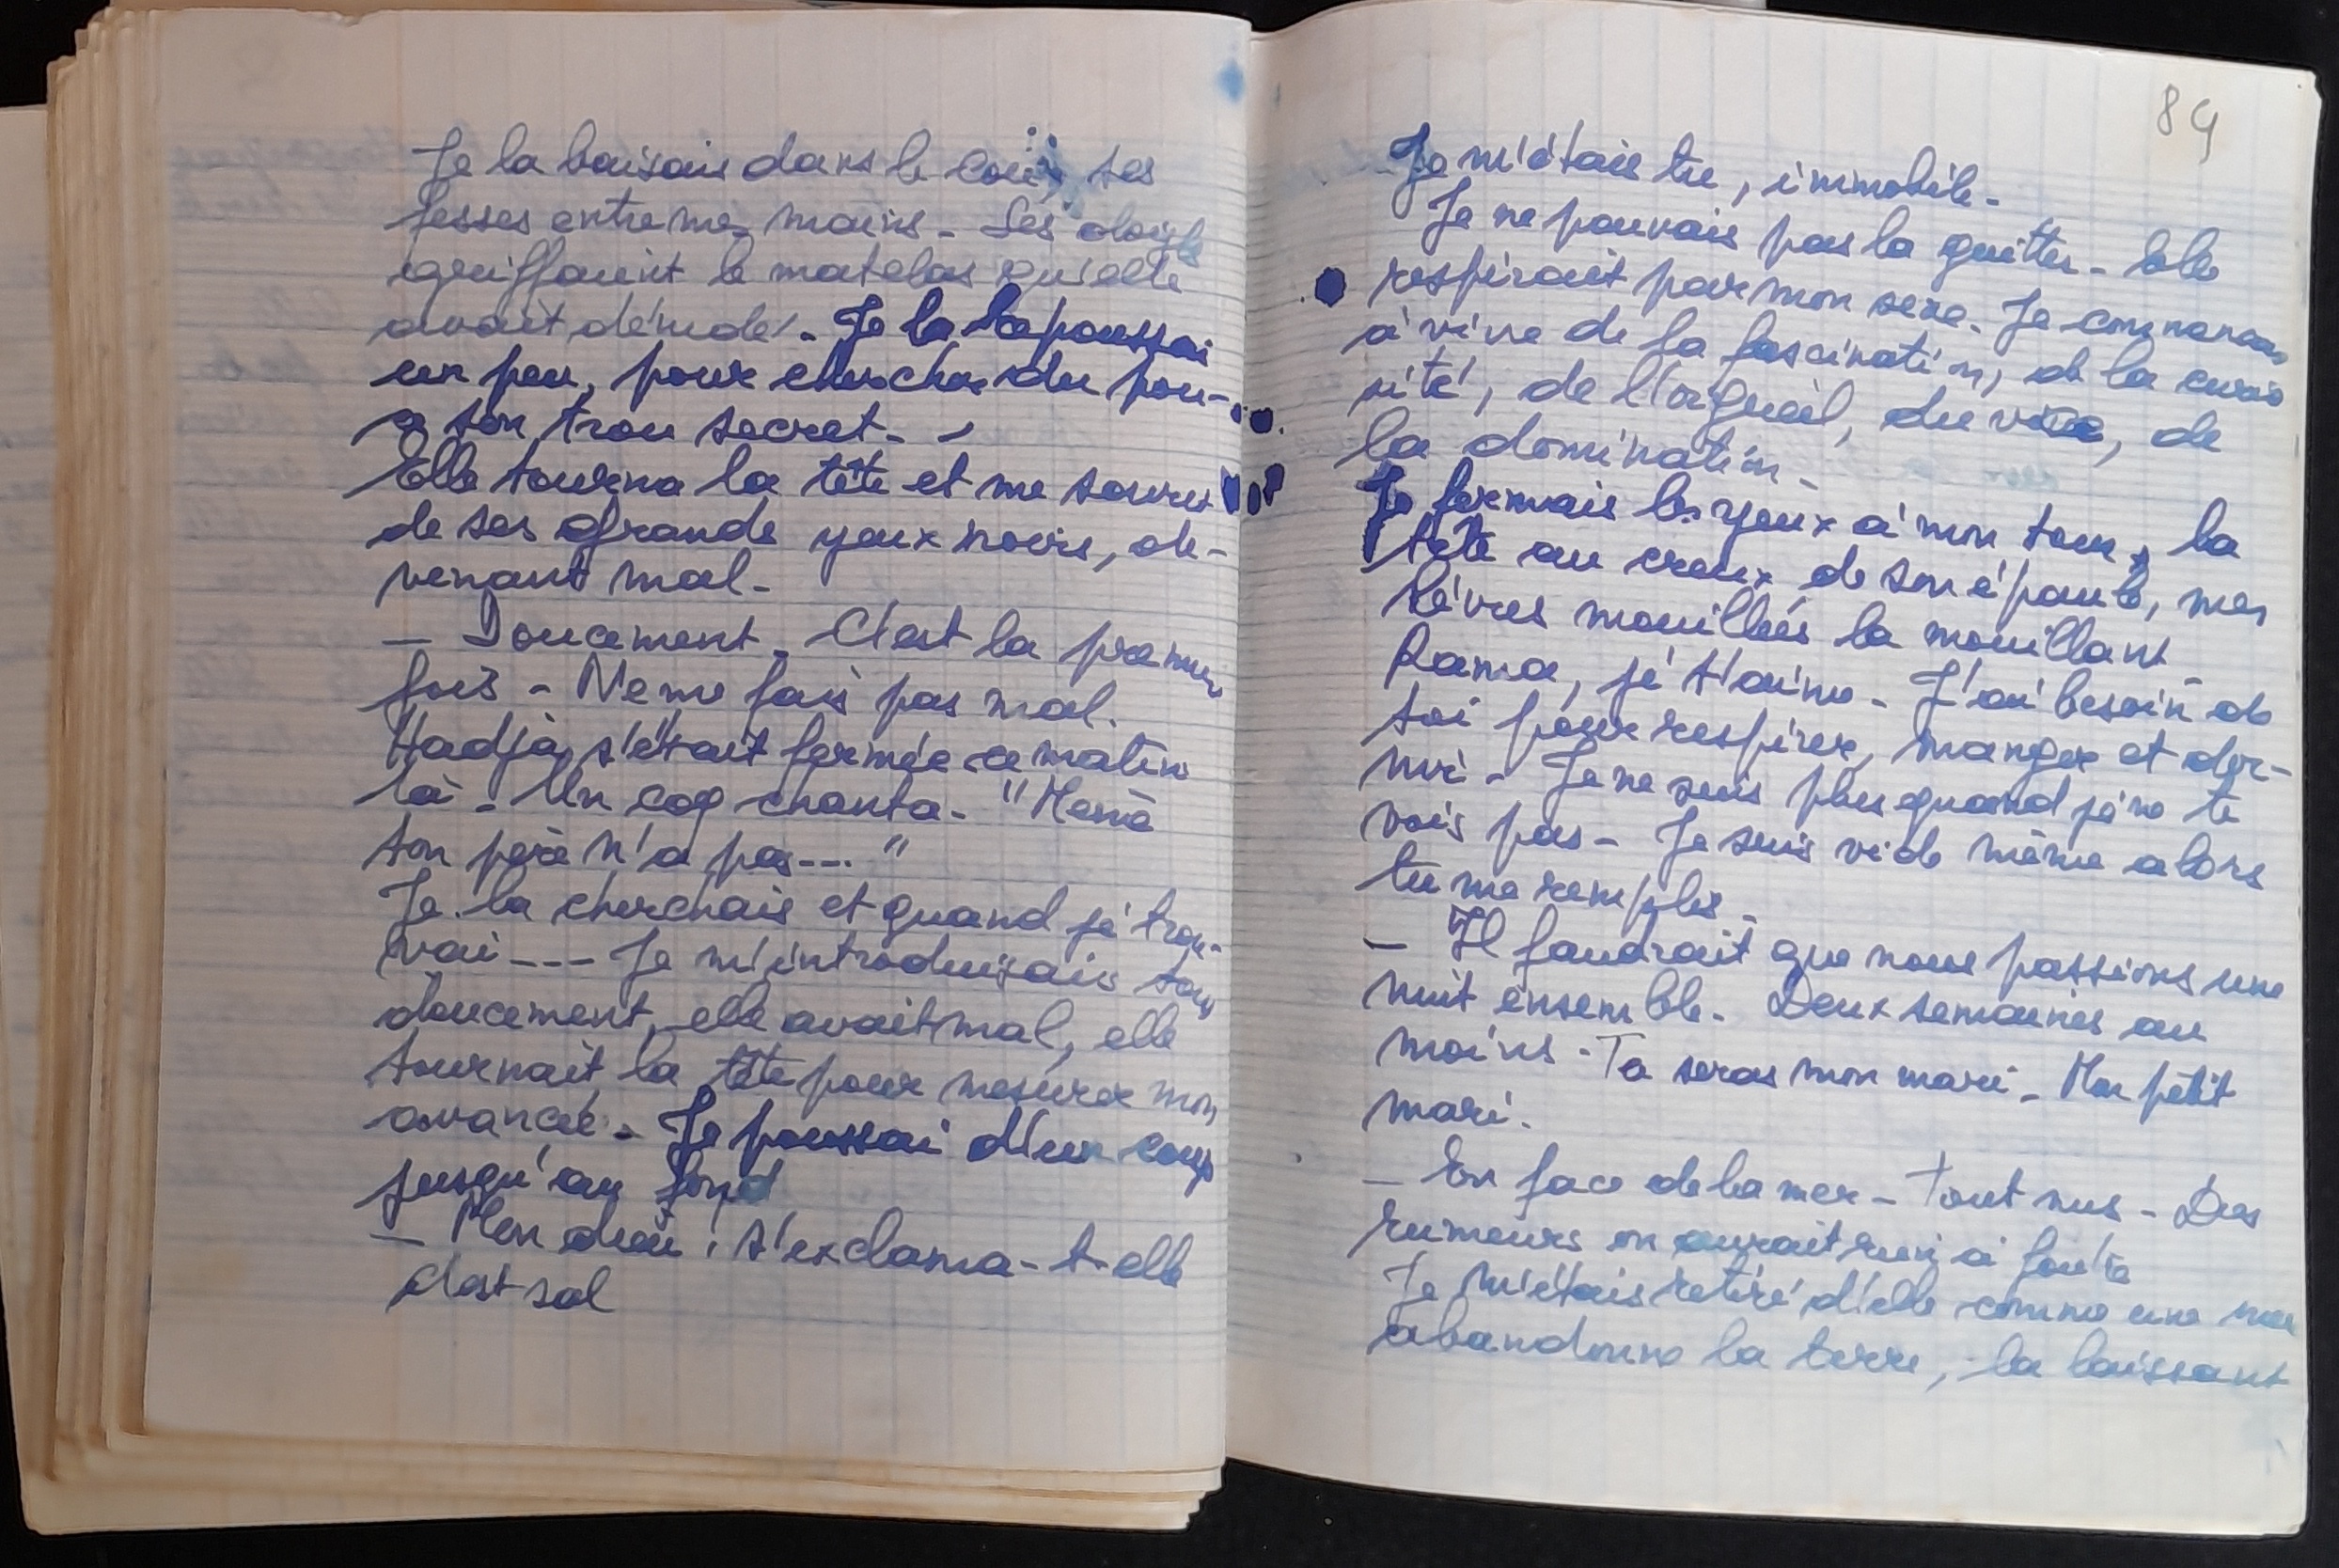 Je la baisais dans le cou, ses
fesses entre mes mains - Ses doigts
griffaient le matelas qu'elle
avait dénudé - Je la repoussai
un peu, pour chercher du pou-
ce son trou secret -
Elle tourna la tête et me sourit
de ses grands yeux noirs, de-
venant mal -
— Doucement - C'est la première
fois - Ne me fais pas mal.
Hadja s'était fermée ce matin
là - Un coq chanta - "Même
ton père n'a pas---"
Je la cherchais et quand je trou-
vai --- Je m'introduisais tout
doucement, elle avait mal, elle
tournait la tête pour mesurer mon
avancée - Je poussai d'un coup
jusqu'au fond
— Mon dieu ! s'exclama-t-elle
c'est sal
89
Je m'étais tu, immobile -
Je ne pouvais pas la quitter - Elle
respirait par mon sexe - Je commençais
à vivre de la fascination, de la curio
sité, de l'orgueil, du vice, de
la domination -
Je fermais les yeux à mon tour, la
tête au creux de son épaule, mes
lèvres mouillées la mouillant
Rama, je t'aime - J'ai besoin de
toi pour respirer, manger et dor-
mir - Je ne suis plus quand je ne te
vois pas - Je suis vide même alors
tu me remplis -
— Il faudrait que nous passions une
nuit ensemble - Deux semaines au
moins - Tu seras mon mari - Mon petit
mari.
— En face de la mer - Tout nus - Des
rumeurs on aurait rien à foutre
Je m'étais retiré d'elle comme une mer
abandonne la terre, la laissant